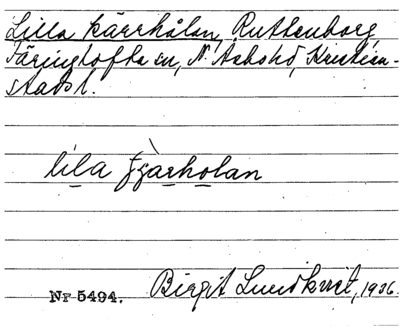 Lilla kärrhålan, Ruttenborg,
Färingtofta sn, N. Åsbo hd, Kristian-
stads l.
lila ʈʂärholan
Nr 5494. Birgit Lundkvist, 1936.